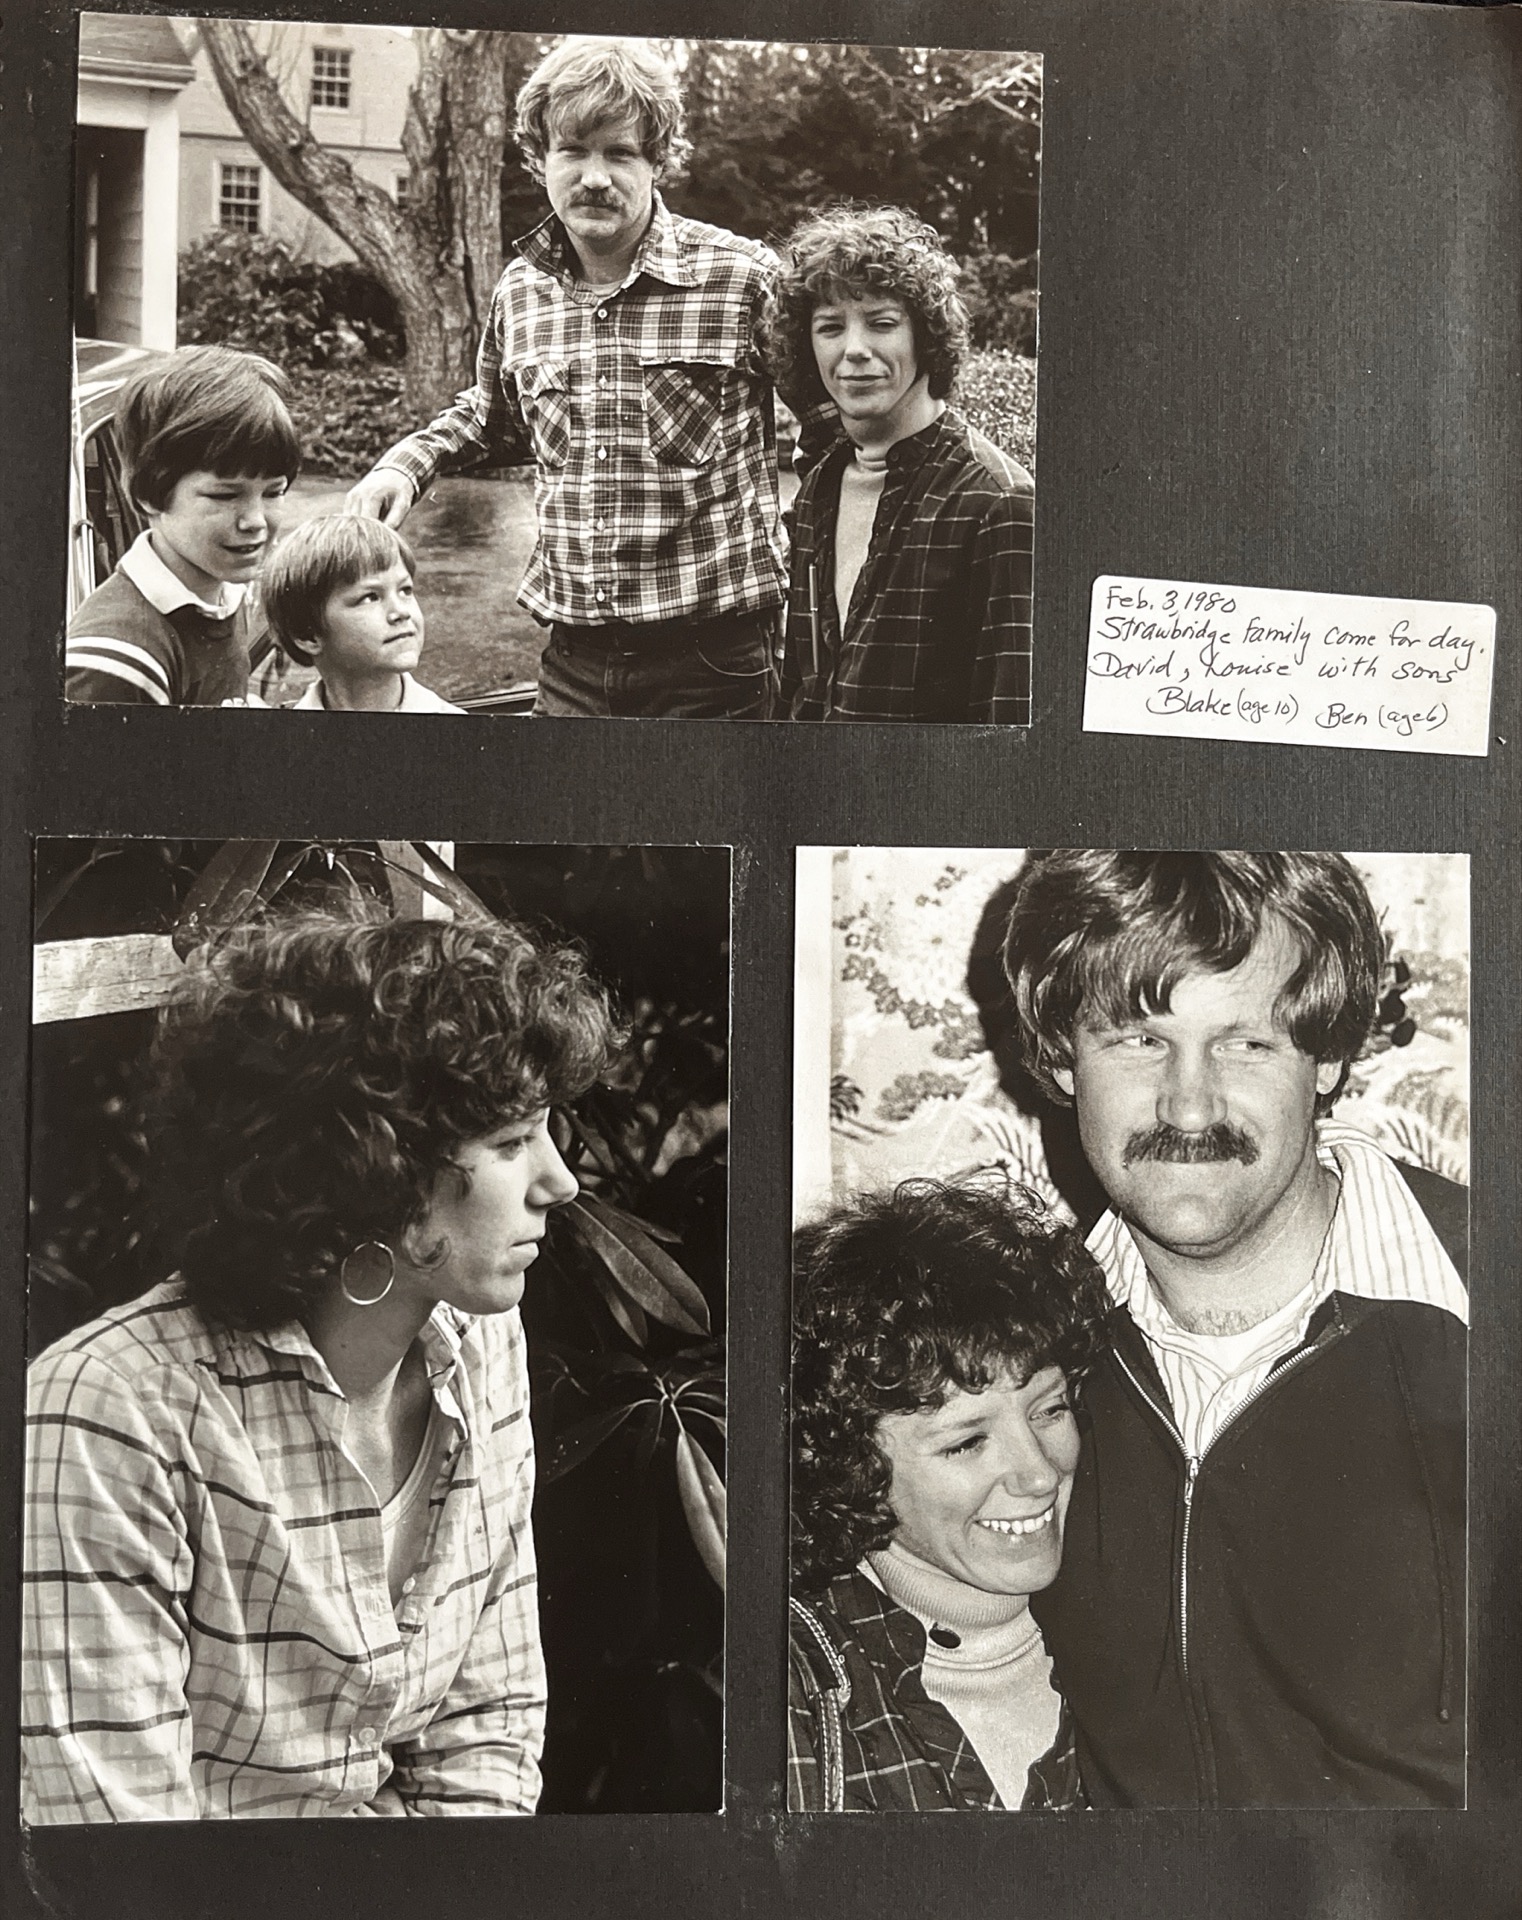 Feb. 3, 1980
Strawbridge family come for day.
David, Louise with sons
Blake (age 10) Ben (age 6)